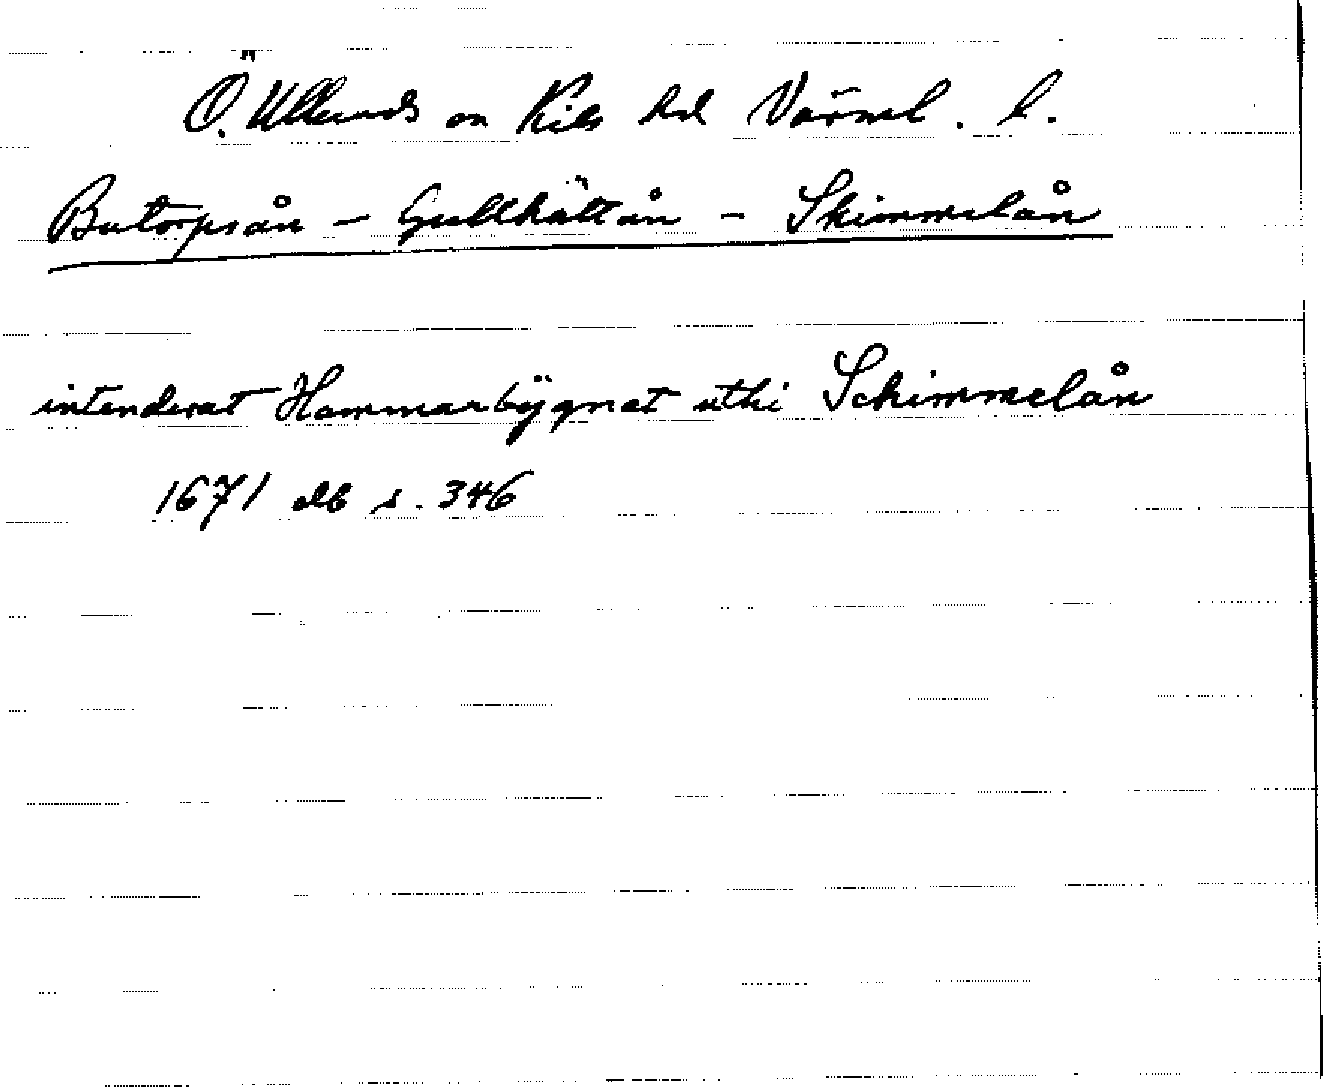 Ö. Ulleruds sn Kils hd Värml. l.
Butorpsån – Gullhättån – Skimmelån
intenderat Hammarbÿgnat uthi Schimmelån
1671 db s. 346